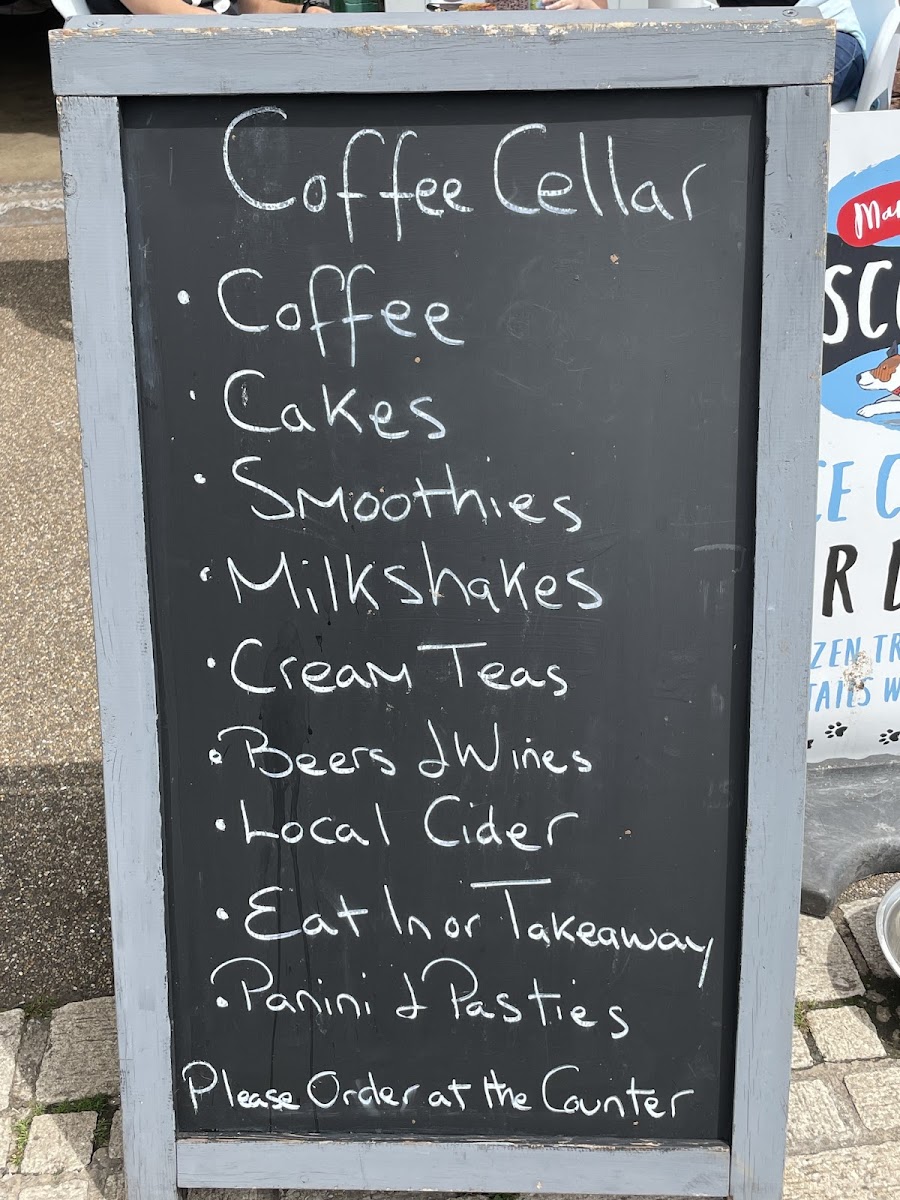 Coffee Cellar
• Coffee
• Cakes
• Smoothies
• Milkshakes
• Cream Teas
• Beers & Wines
• Local Cider
• Eat In or Takeaway
• Panini & Pasties
Please Order at the Counter